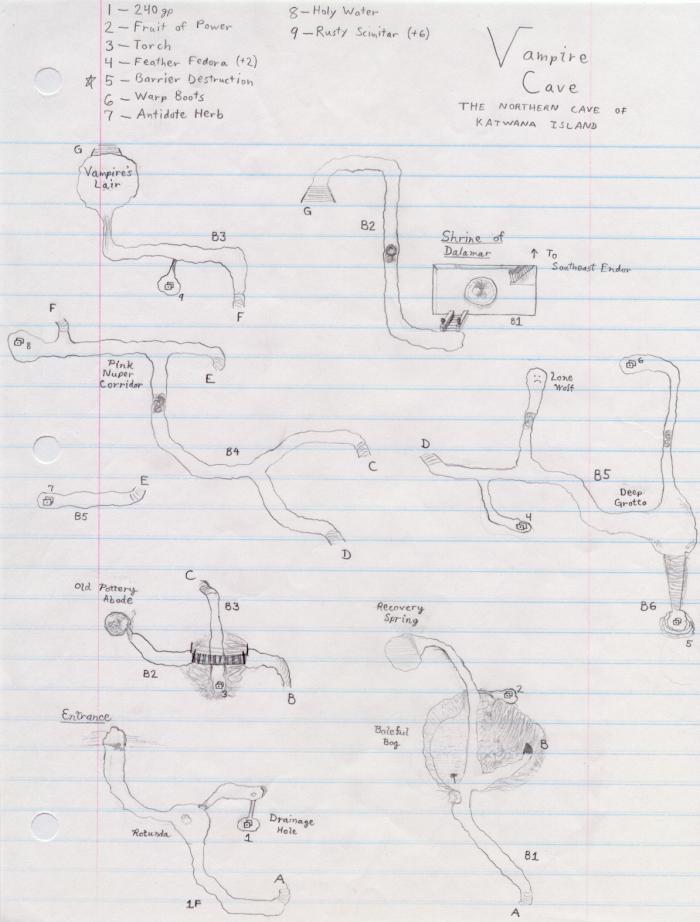 1 – 240 gp
2 – Fruit of Power
3 – Torch
4 – Feather Fedora (+2)
☆ 5 – Barrier Destruction
6 – Warp Boots
7 – Antidote Herb
8 – Holy Water
9 – Rusty Scimitar (+6)
Vampire
Cave
THE NORTHERN CAVE OF
KATWANA ISLAND
G
Vampire's
Lair
B3
9
F
G
B2
Shrine of
Dalamar
↑ To
Southeast Endor
B1
F
8
Pink
Nuper
Corridor
E
B4
C
D
7
E
B5
6
Lone
Wolf
D
B5
Deep
Grotto
4
B6
5
Old Pottery
Abode
C
B3
B2
3
B
Recovery
Spring
2
Baleful
Bog
B
B1
A
Entrance
Rotunda
Drainage
Hole
1
A
1F